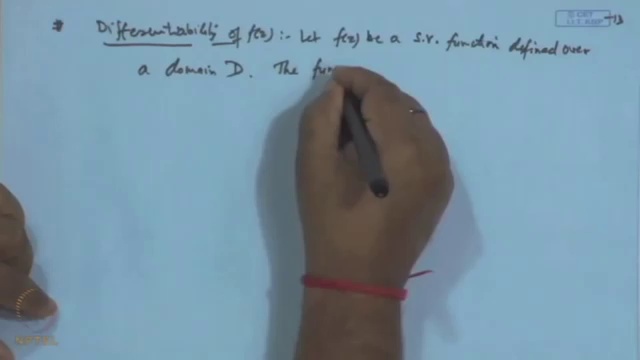 * Differentiability of f(z) :- Let f(z) be a s.v. function defined over
a domain D. The fun
© CET
I.I.T. KGP
NPTEL